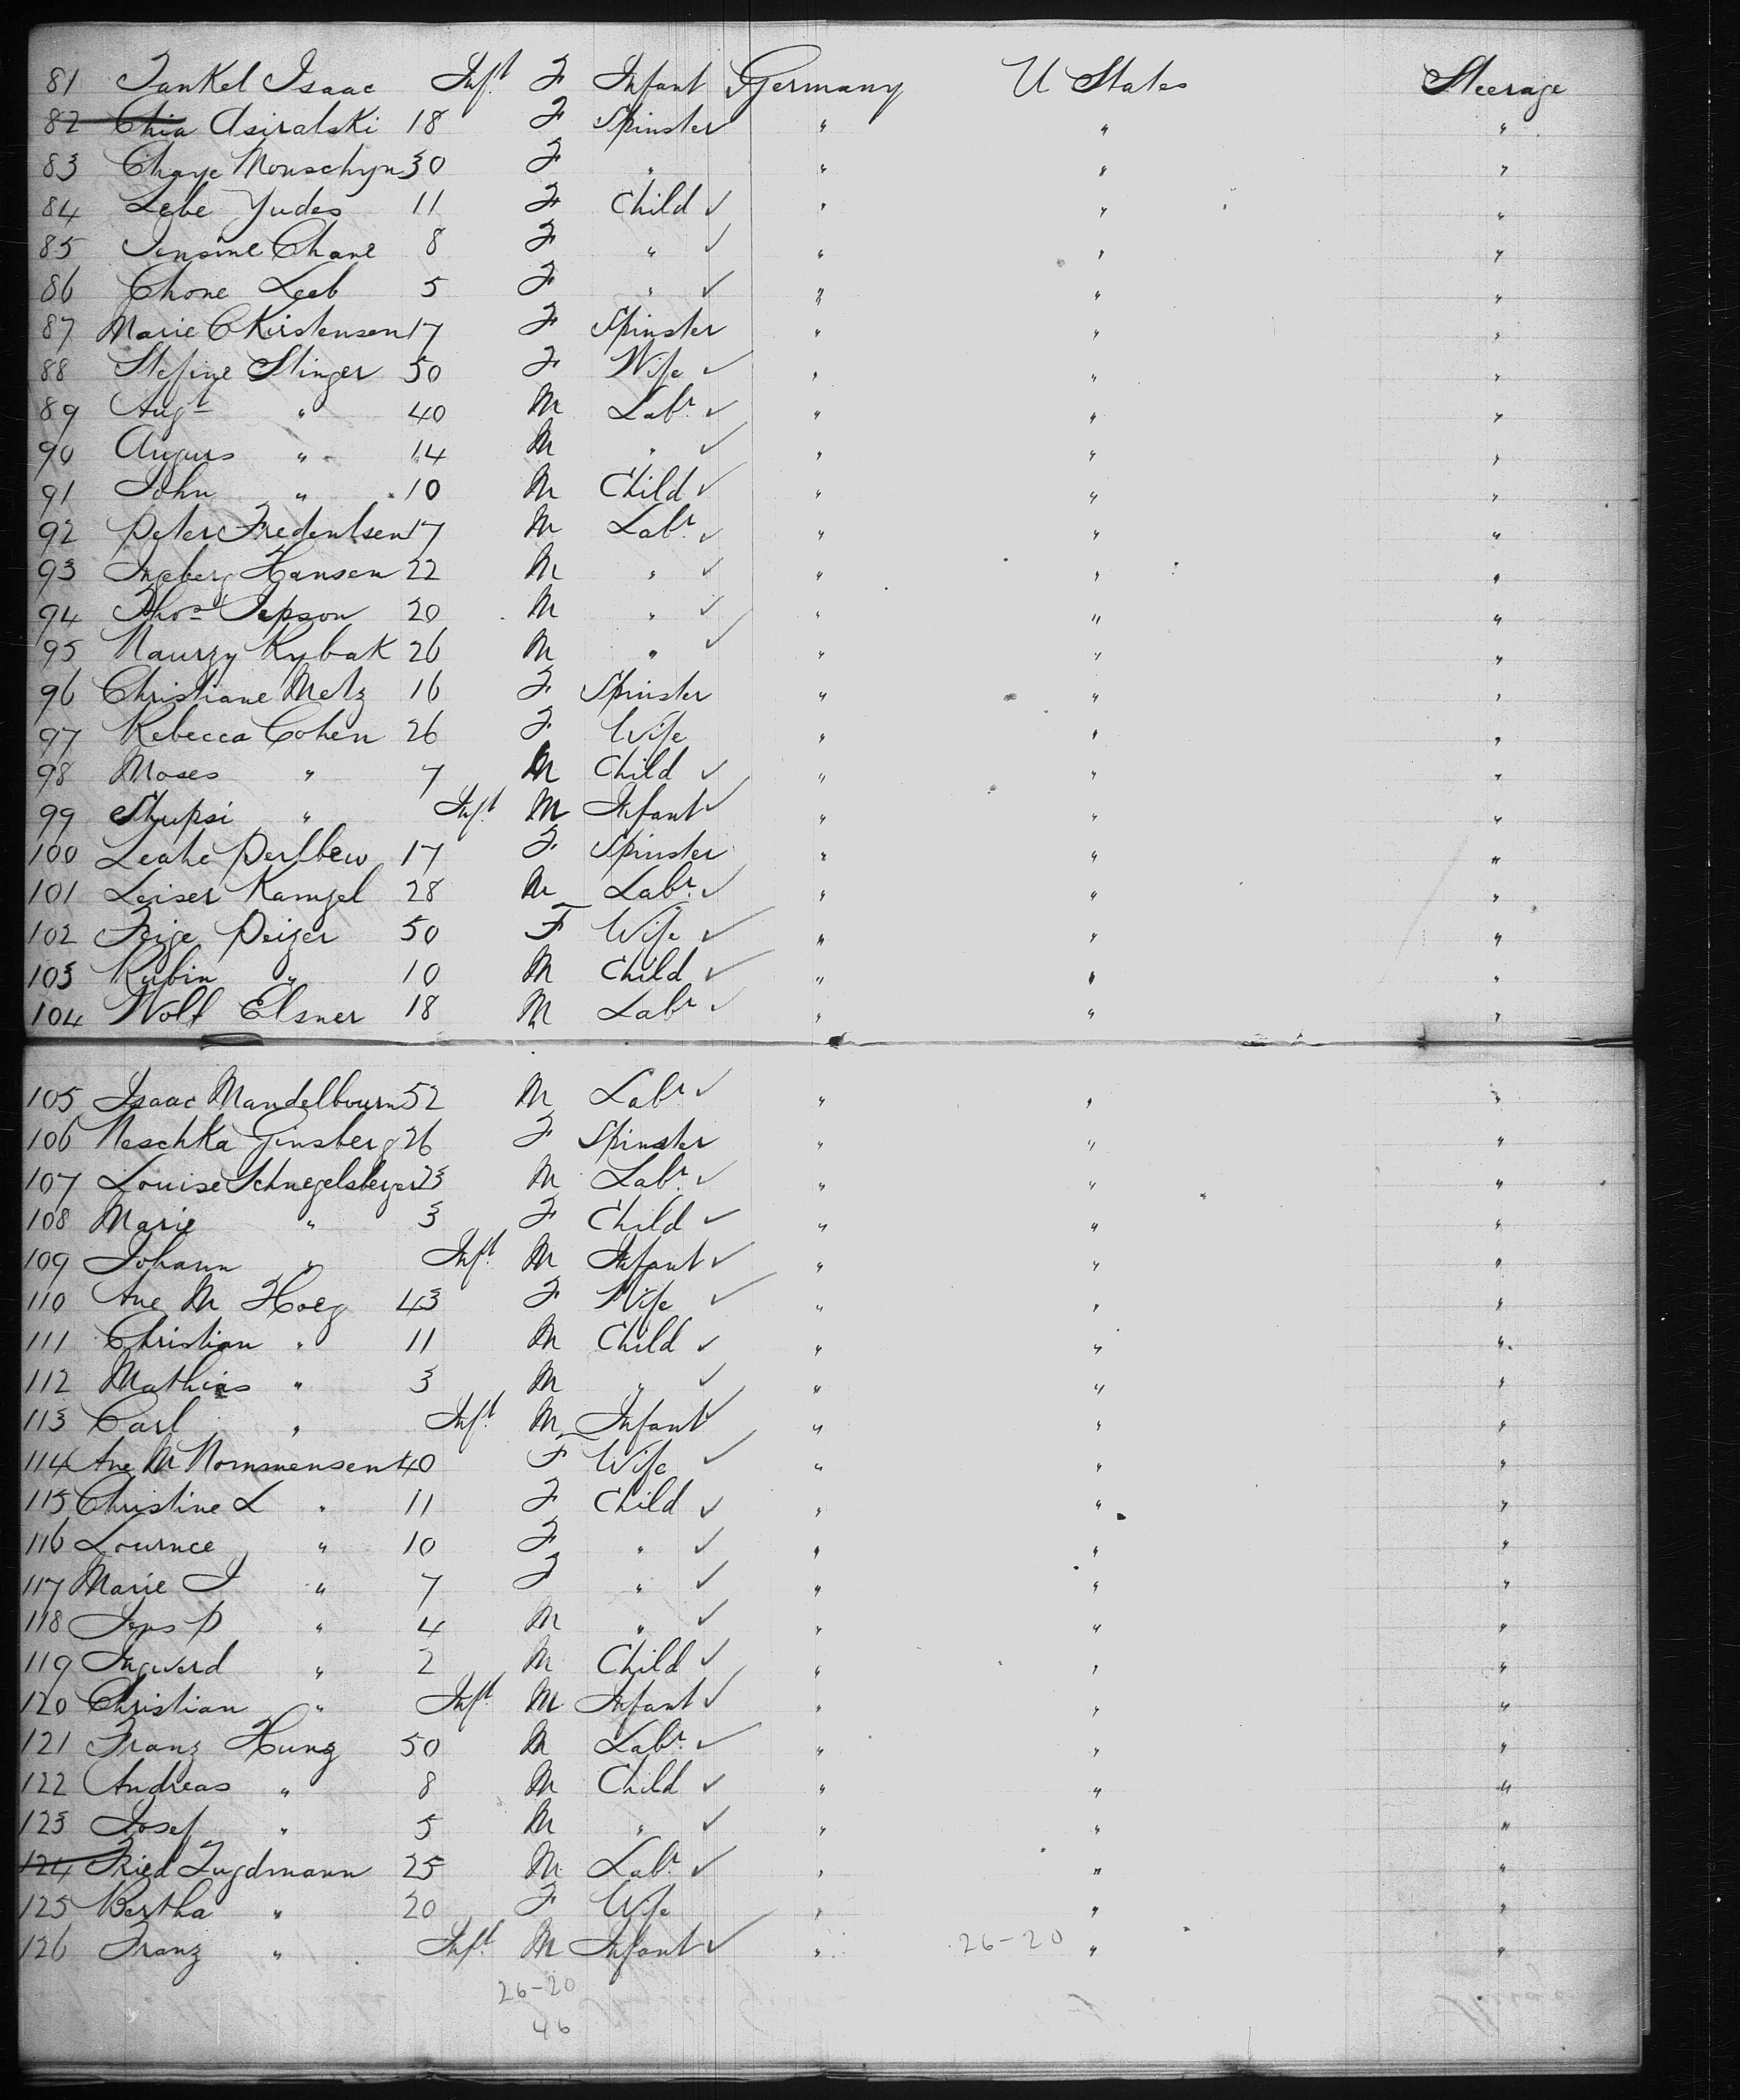 81 Jankel Isaac Inft F Infant Germany U States Steerage
82 Chia Asiratski 18 F Spinster " " "
83 Chaye Monschyn 30 F " " " "
84 Lebe Yudes 11 F Child ✓ " " "
85 Tensine Chane 8 F " ✓ " " "
86 Chone Leeb 5 F " ✓ " " "
87 Marie C Kirstensen 17 F Spinster " " "
88 Stefine Stinger 50 F Wife ✓ " " "
89 Augt " 40 M Labr ✓ " " "
90 Augus " 14 M " ✓ " " "
91 John " 10 M Child ✓ " " "
92 Peter Fredentsen 17 M Labr ✓ " " "
93 Ingeberg Hansen 22 M " ✓ " " "
94 Thos Jepson 20 M " ✓ " " "
95 Naurzy Rybak 26 M " ✓ " " "
96 Christiane Metz 16 F Spinster " " "
97 Rebecca Cohen 26 F Wife " " "
98 Moses " 7 M Child ✓ " " "
99 Stupsi " Inft M Infant ✓ " " "
100 Leahe Perlbew 17 F Spinster " " "
101 Leiser Kamgel 28 M Labr ✓ " " "
102 Feige Peizer 50 F Wife ✓ " " "
103 Rubin " 10 M Child ✓ " " "
104 Wolf Elsner 18 M Labr ✓ " " "
105 Isaac Mandelbourn 52 M Labr ✓ " " "
106 Neschka Ginsberg 26 F Spinster " " "
107 Louise Schnegelsberger 23 M Labr ✓ " " "
108 Marie " 3 F Child ✓ " " "
109 Johann " Inft M Infant ✓ " " "
110 Ane M Hoeg 43 F Wife ✓ " " "
111 Christian " 11 M Child ✓ " " "
112 Mathias " 3 M " ✓ " " "
113 Carl " Inft M Infant ✓ " " "
114 Ane M Nommensen 40 F Wife ✓ " " "
115 Christine L " 11 F Child ✓ " " "
116 Lournce " 10 F " ✓ " " "
117 Marie J " 7 F " ✓ " " "
118 Jens P " 4 M " ✓ " " "
119 Ingverd " 2 M Child ✓ " " "
120 Christian " Inft M Infant ✓ " " "
121 Franz Hung 50 M Labr ✓ " " "
122 Andreas " 8 M Child ✓ " " "
123 Josef " 5 M " ✓ " " "
124 Fried Tugdmann 25 M Labr ✓ " " "
125 Bertha " 20 F Wife " " "
126 Franz " Inft M Infant ✓ " 26-20 " "
26-20
46